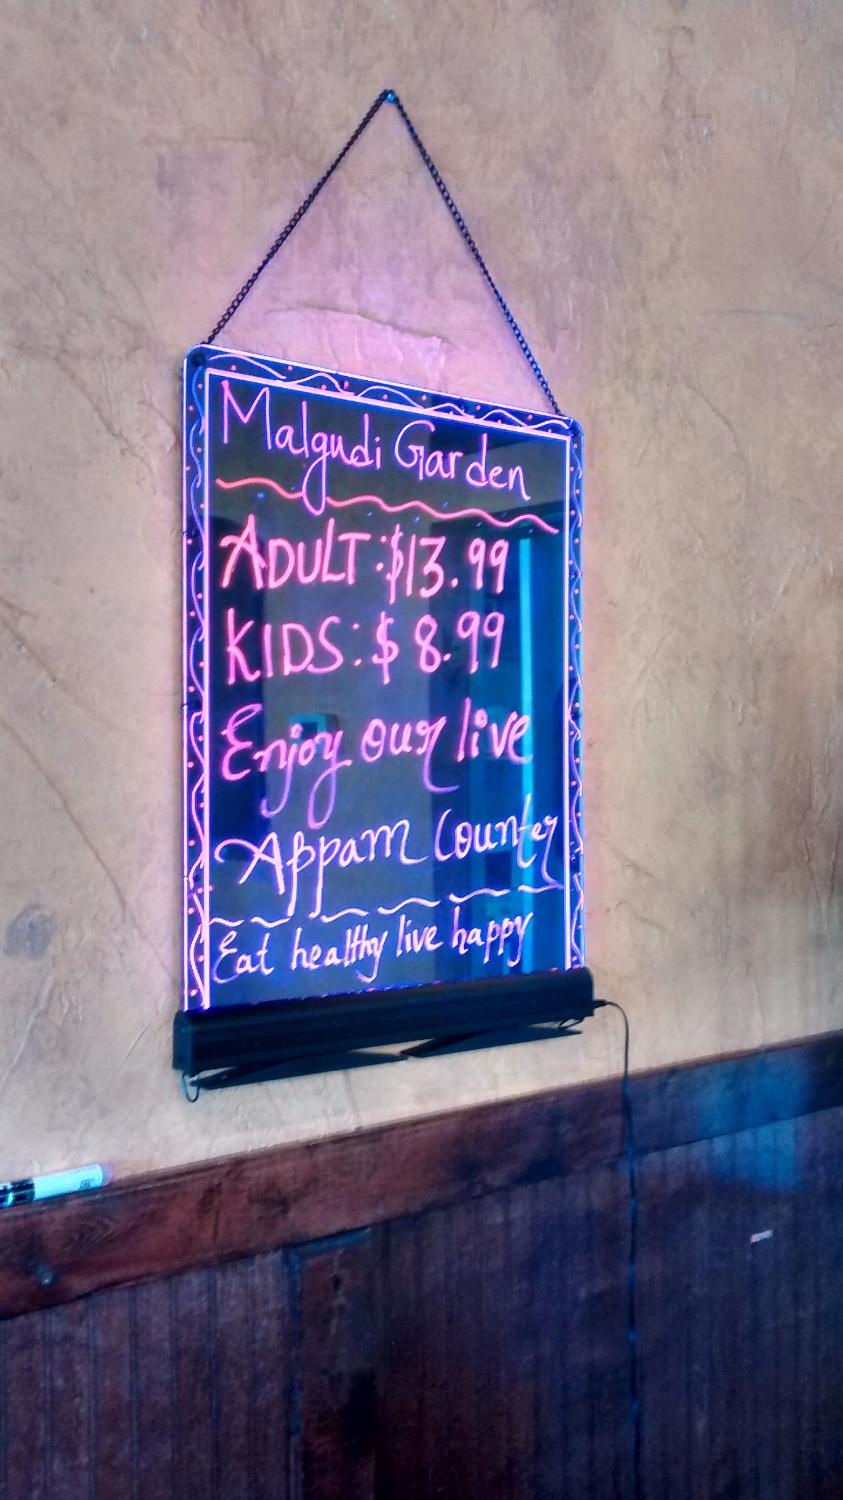 Malgudi Garden
ADULT:$13.99
KIDS:$8.99
Enjoy our live
Appam Counter
Eat healthy live happy